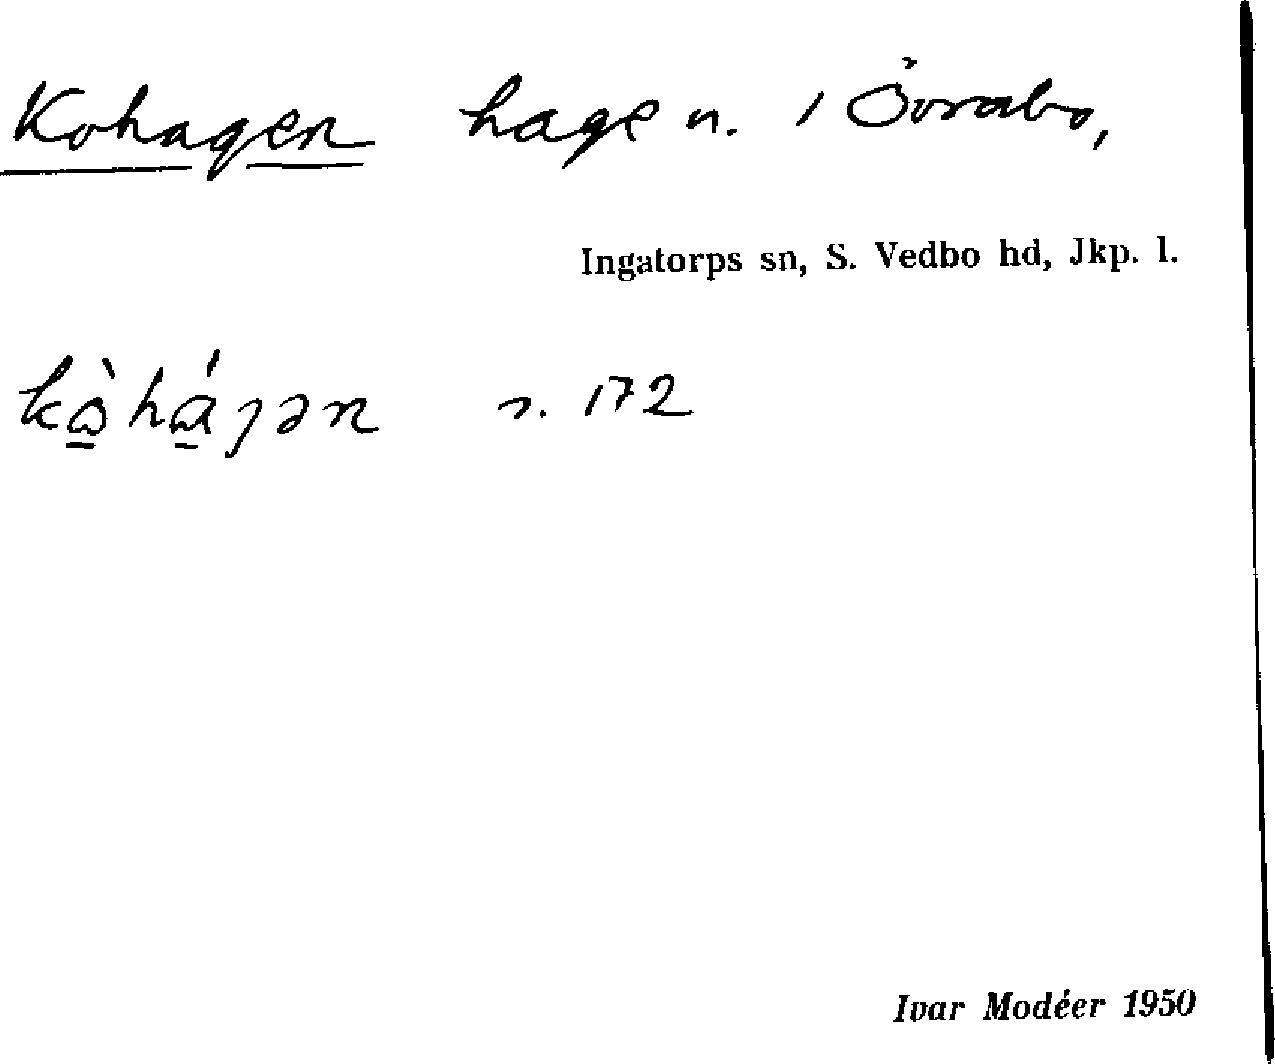 Kohagen hage n. i Övrabo,
Ingatorps sn, S. Vedbo hd, Jkp. l.
n. 172
Ivar Modéer 1950